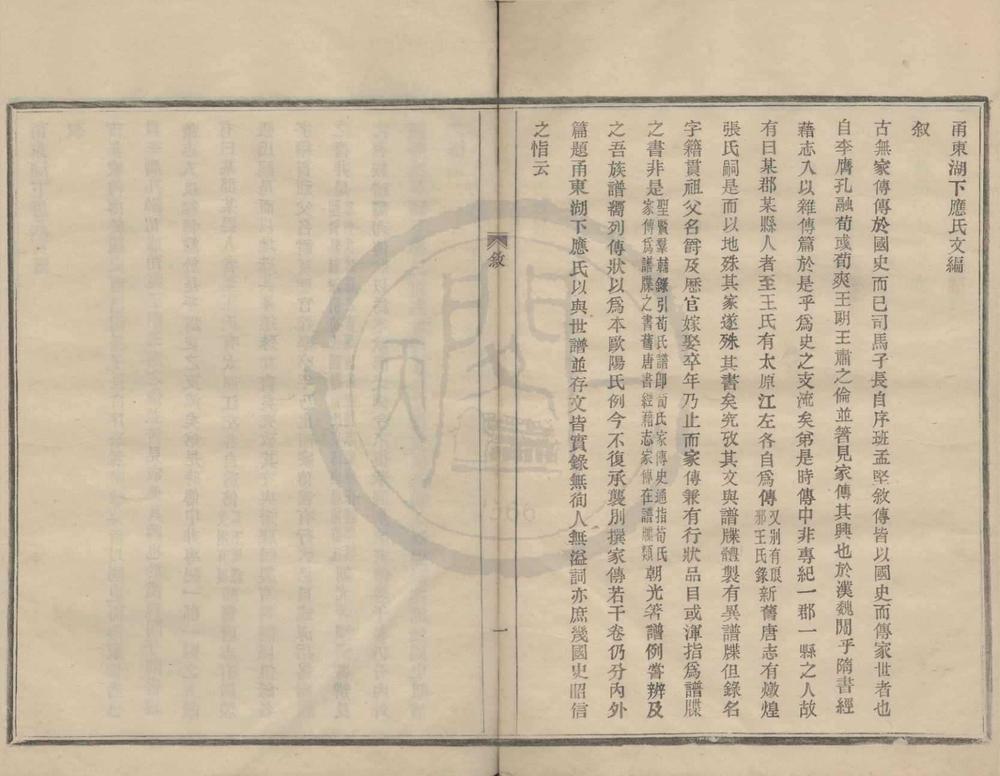 甬東湖下應氏文編
叙
古無家傳傳於國史而已司馬子長自序班孟堅敘傳皆以國史而傳家世者也
自李膺孔融荀彧荀爽王朗王肅之倫並著見家傳其興也於漢魏閒乎隋書經
藉志入以雜傳篇於是乎爲史之支流矣弟是時傳中非專紀一郡一縣之人故
有曰某郡某縣人者至王氏有太原江左各自爲傳又別有琅邪王氏錄新舊唐志有燉煌
張氏嗣是而以地殊其家遂殊其書矣究攷其文與譜牒體製有異譜牒但錄名
字籍貫祖父名爵及歷官嫁娶卒年乃止而家傳兼有行狀品目或渾指爲譜牒
之書非是聖賢羣輔錄引荀氏譜卽荀氏家傳史通指荀氏家傳爲譜牒之書舊唐書經藉志家傳在譜牒類朝光筞譜例嘗辨及
之吾族譜獨列傳狀以爲本歐陽氏例今不復承襲別撰家傳若干卷仍分內外
篇題甬東湖下應氏以與世譜並存文皆實錄無徇人無溢詞亦庶幾國史昭信
之恉云
敘
一